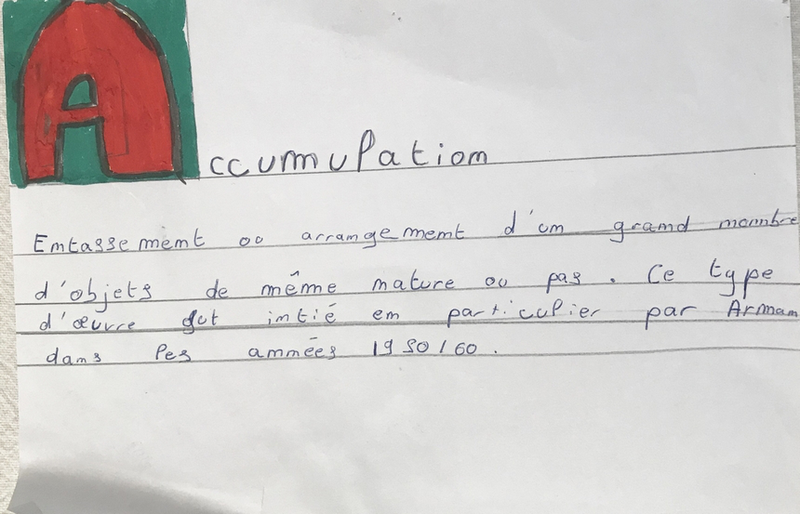 Accumulation
Entassement ou arrangement d'un grand nombre
d'objets de même nature ou pas. Ce type
d'œuvre fut intié en particulier par Arman
dans les années 1950/60.